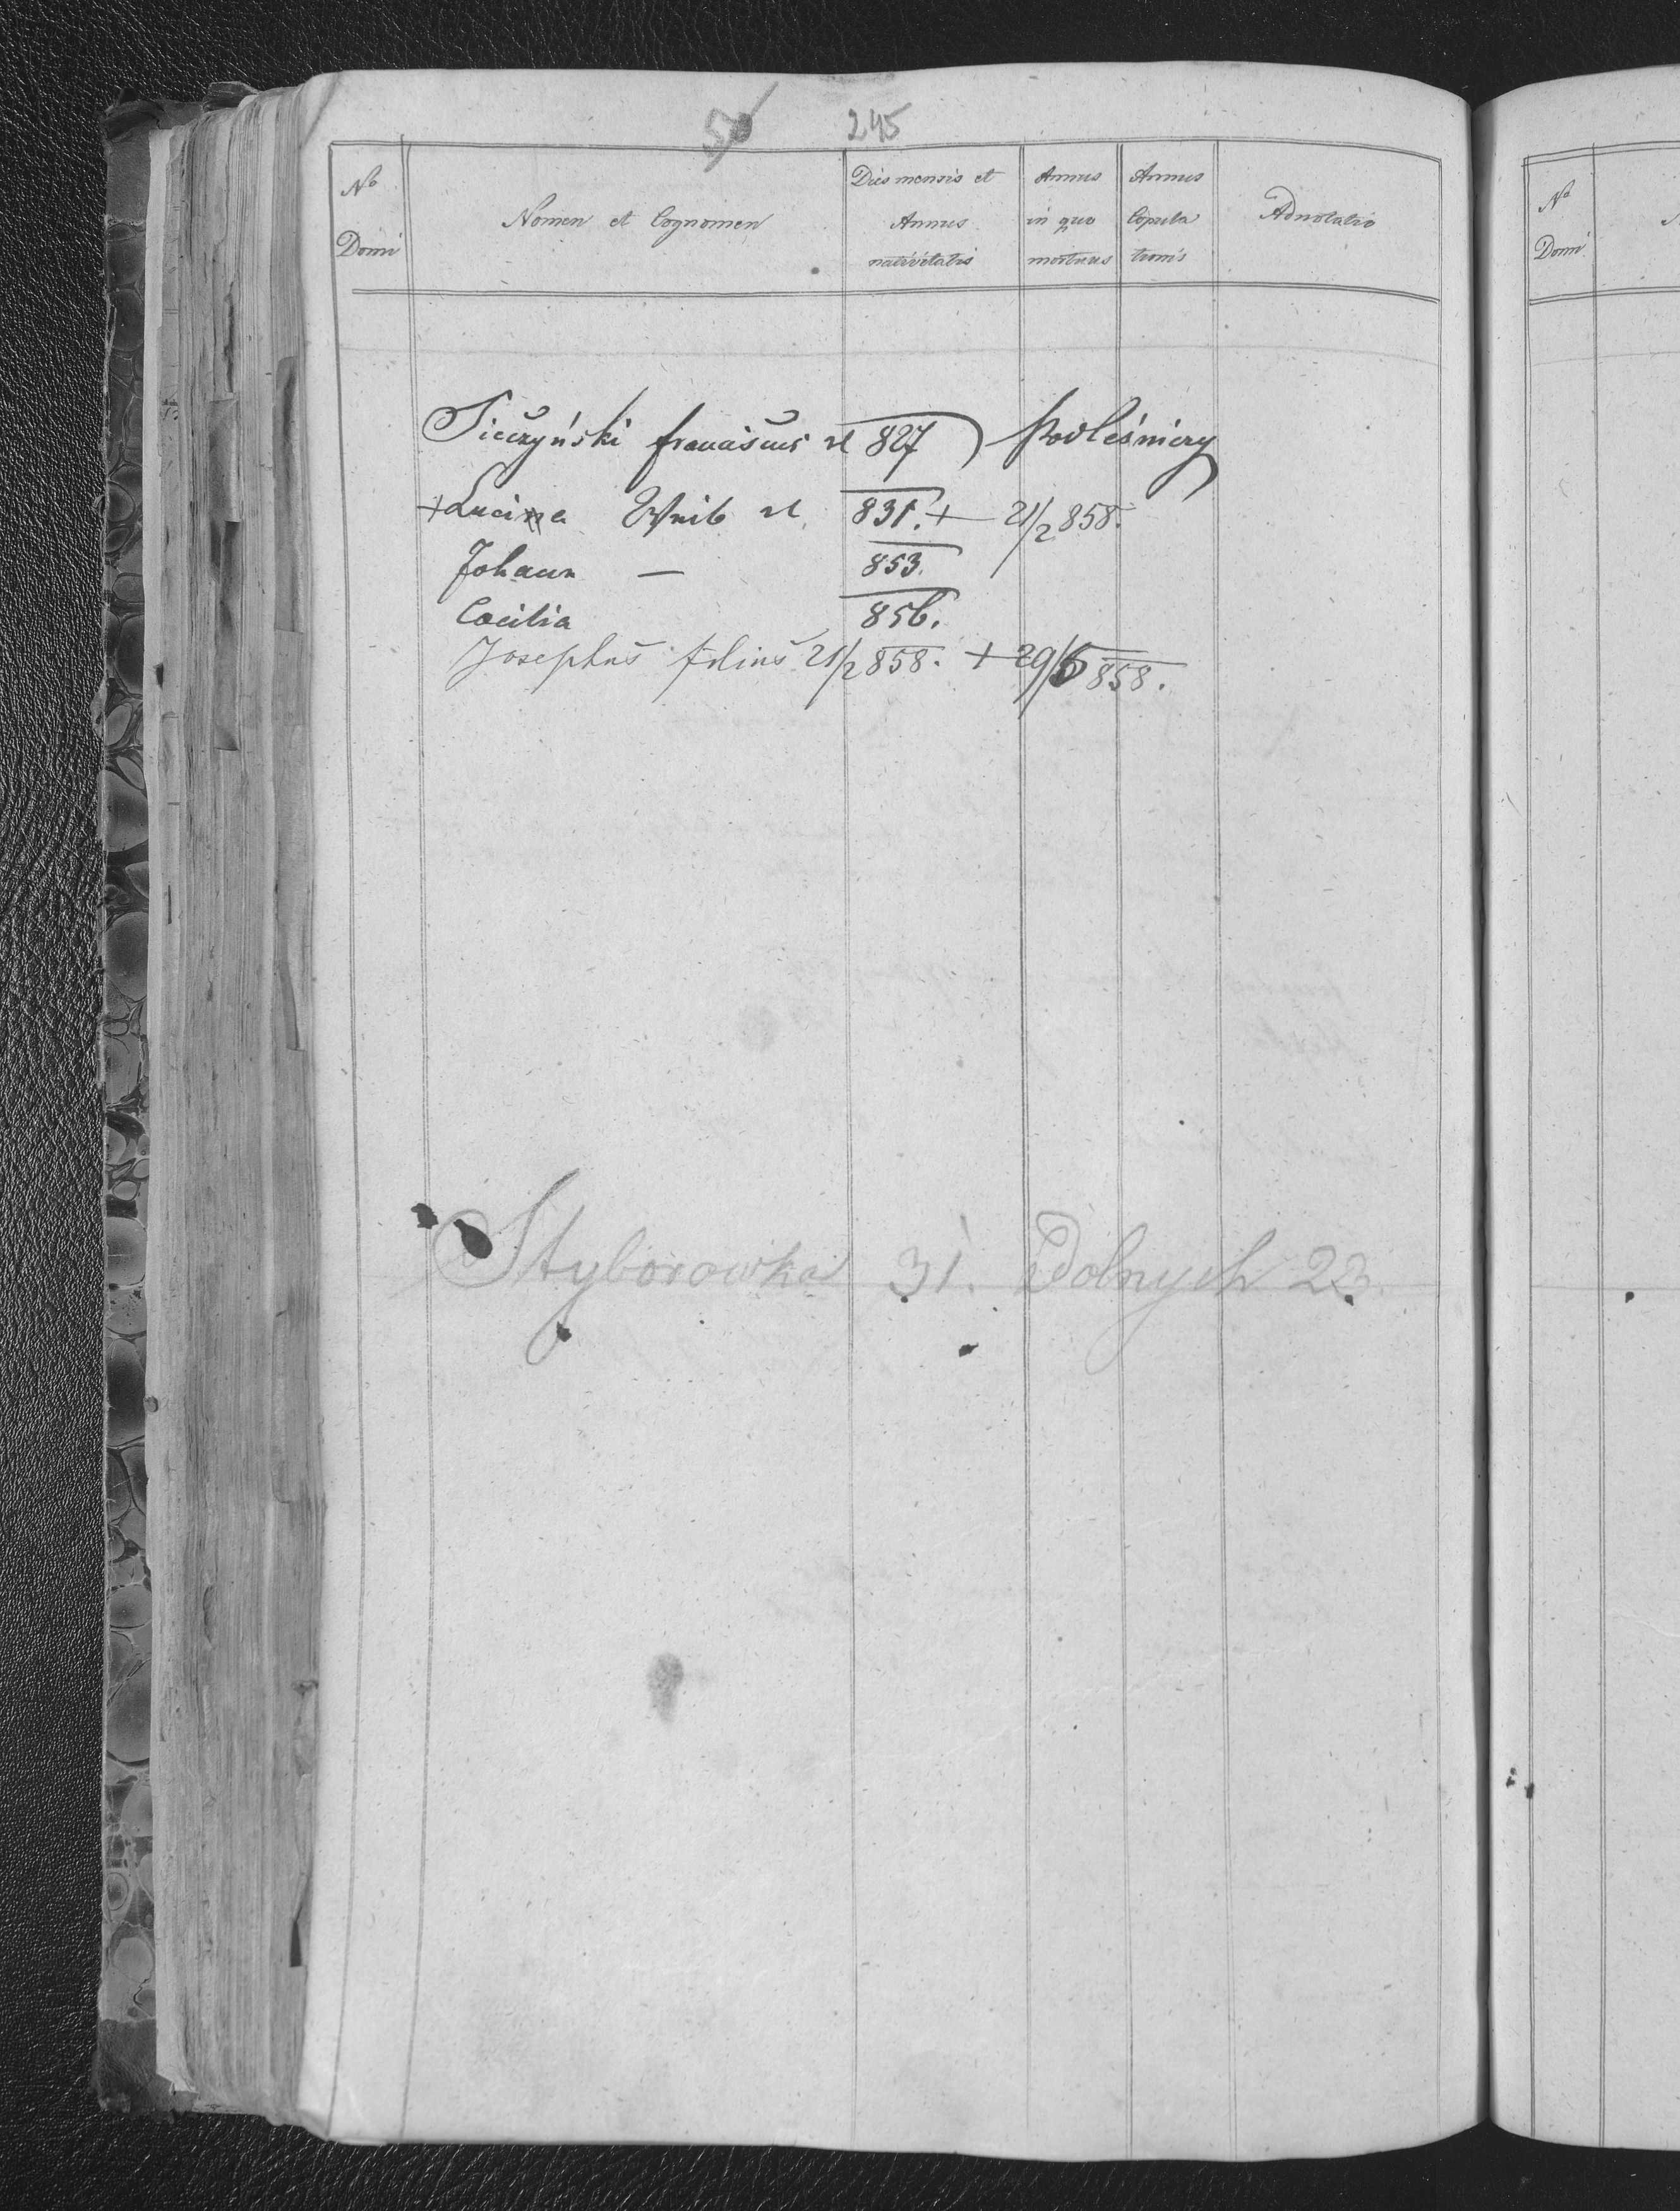 50 245
No Domi
Nomen et Cognomen
Dies mensis et Annus nativitatis
Annus in quo mortuus
Annus Copulationis
Adnotatio
Siczyński Franciscus rl 827 ) Podleśniczy
+ Lucina Wnib rl 831. + 21/2 858.
Johann — 853.
Cecilia 856.
Josephus filius 21/2 858. + 29/5 858.
Styborowka 31. Dolnych 23.
No
Domi